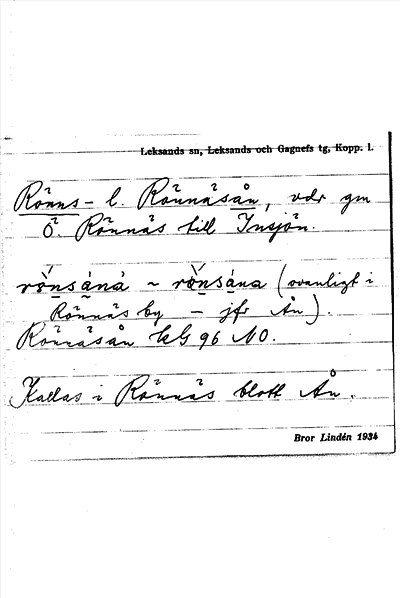 Leksands sn, Leksands och Gagnefs tg, Kopp. l.
Rönns- l. Rönnäsån, vdr gm
Ö. Rönnäs till Insjön.
rönsåna ~ rönsåna (ovanligt i
Rönnäs by – jfr Ån).
Rönnäsån kG 96 NO.
Kallas i Rönnäs blott Ån.
Bror Lindén 1934